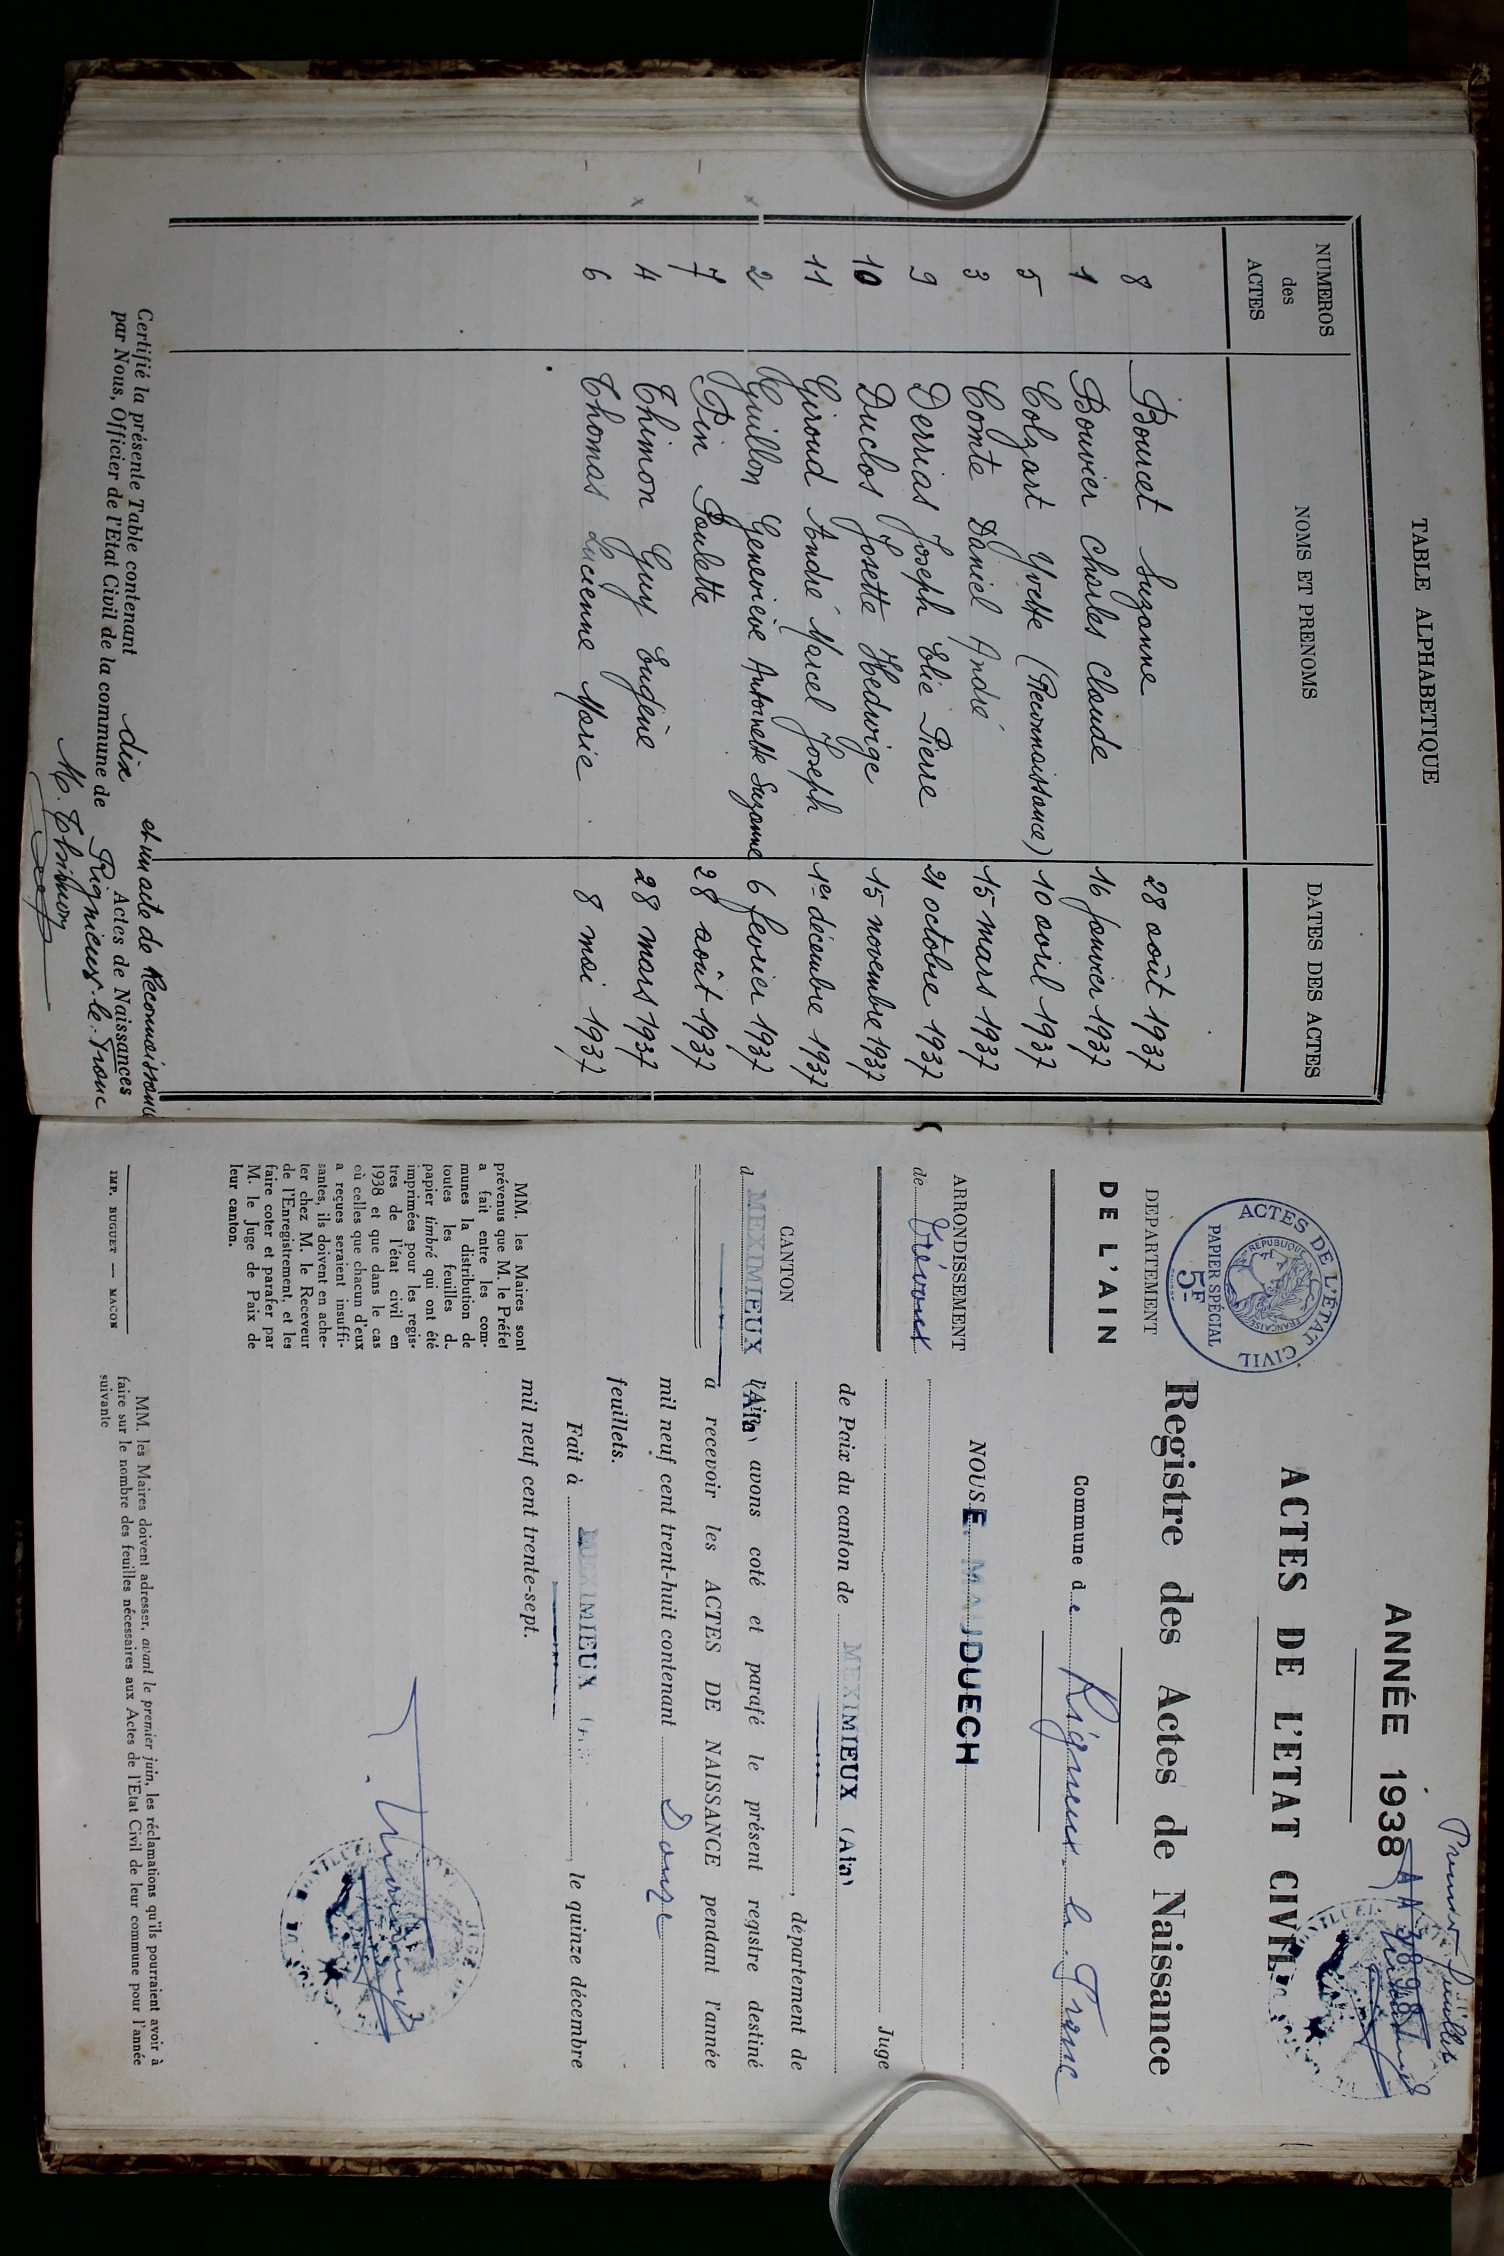 TABLE ALPHABETIQUE
NUMEROS des ACTES
NOMS ET PRENOMS
DATES DES ACTES
8 Bourcet Suzanne 28 août 1937
1 Bouvier Charles Claude 16 janvier 1937
5 Colzart Yvette (Reconnaissance) 10 avril 1937
3 Comte Daniel André 15 mars 1937
9 Derrias Joseph Elie Pierre 21 octobre 1937
10 Duclos Josette Hedwige 15 novembre 1937
11 Giroud André Marcel Joseph 1er décembre 1937
2 Guillon Geneviève Antoinette Suzanne 6 fevrier 1937
7 Pin Paulette 28 août 1937
4 Thimon Guy Eugène 28 mars 1937
6 Thomas Lucienne Marie 8 mai 1937
et un acte de Reconnaissance
Certifié la présente Table contenant dix Actes de Naissances
par Nous, Officier de l'Etat Civil de la commune de Rignieux-le-Franc
M. Thimon
Premier feuillet
ANNÉE 1938
ACTES DE L'ETAT CIVIL
Registre des Actes de Naissance
Commune de Rignieux le Franc
ACTES DE L'ÉTAT CIVIL
REPUBLIQUE FRANÇAISE
PAPIER SPÉCIAL
5F
DEPARTEMENT
DE L'AIN
ARRONDISSEMENT
de Trévoux
CANTON
d MEXIMIEUX (Ain)
MM. les Maires sont
prévenus que M. le Préfet
a fait entre les com-
munes la distribution de
toutes les feuilles du
papier timbré qui ont été
imprimées pour les regis-
tres de l'état civil en
1938 et que dans le cas
où celles que chacun d'eux
a reçues seraient insuffi-
santes, ils doivent en ache-
ter chez M. le Receveur
de l'Enregistrement, et les
faire coter et parafer par
M. le Juge de Paix de
leur canton.
IMP. BUGUET — MACON
NOUS E. MAUDUECH
Juge
de Paix du canton de MEXIMIEUX (Ain)
, département de
l'Ain avons coté et parafé le présent registre destiné
à recevoir les ACTES DE NAISSANCE pendant l'année
mil neuf cent trent-huit contenant Douze
feuillets.
Fait à MEXIMIEUX , le quinze décembre
mil neuf cent trente-sept.
MM. les Maires doivent adresser, avant le premier juin, les réclamations qu'ils pourraient avoir à
faire sur le nombre des feuilles nécessaires aux Actes de l'Etat Civil de leur commune pour l'année
suivante